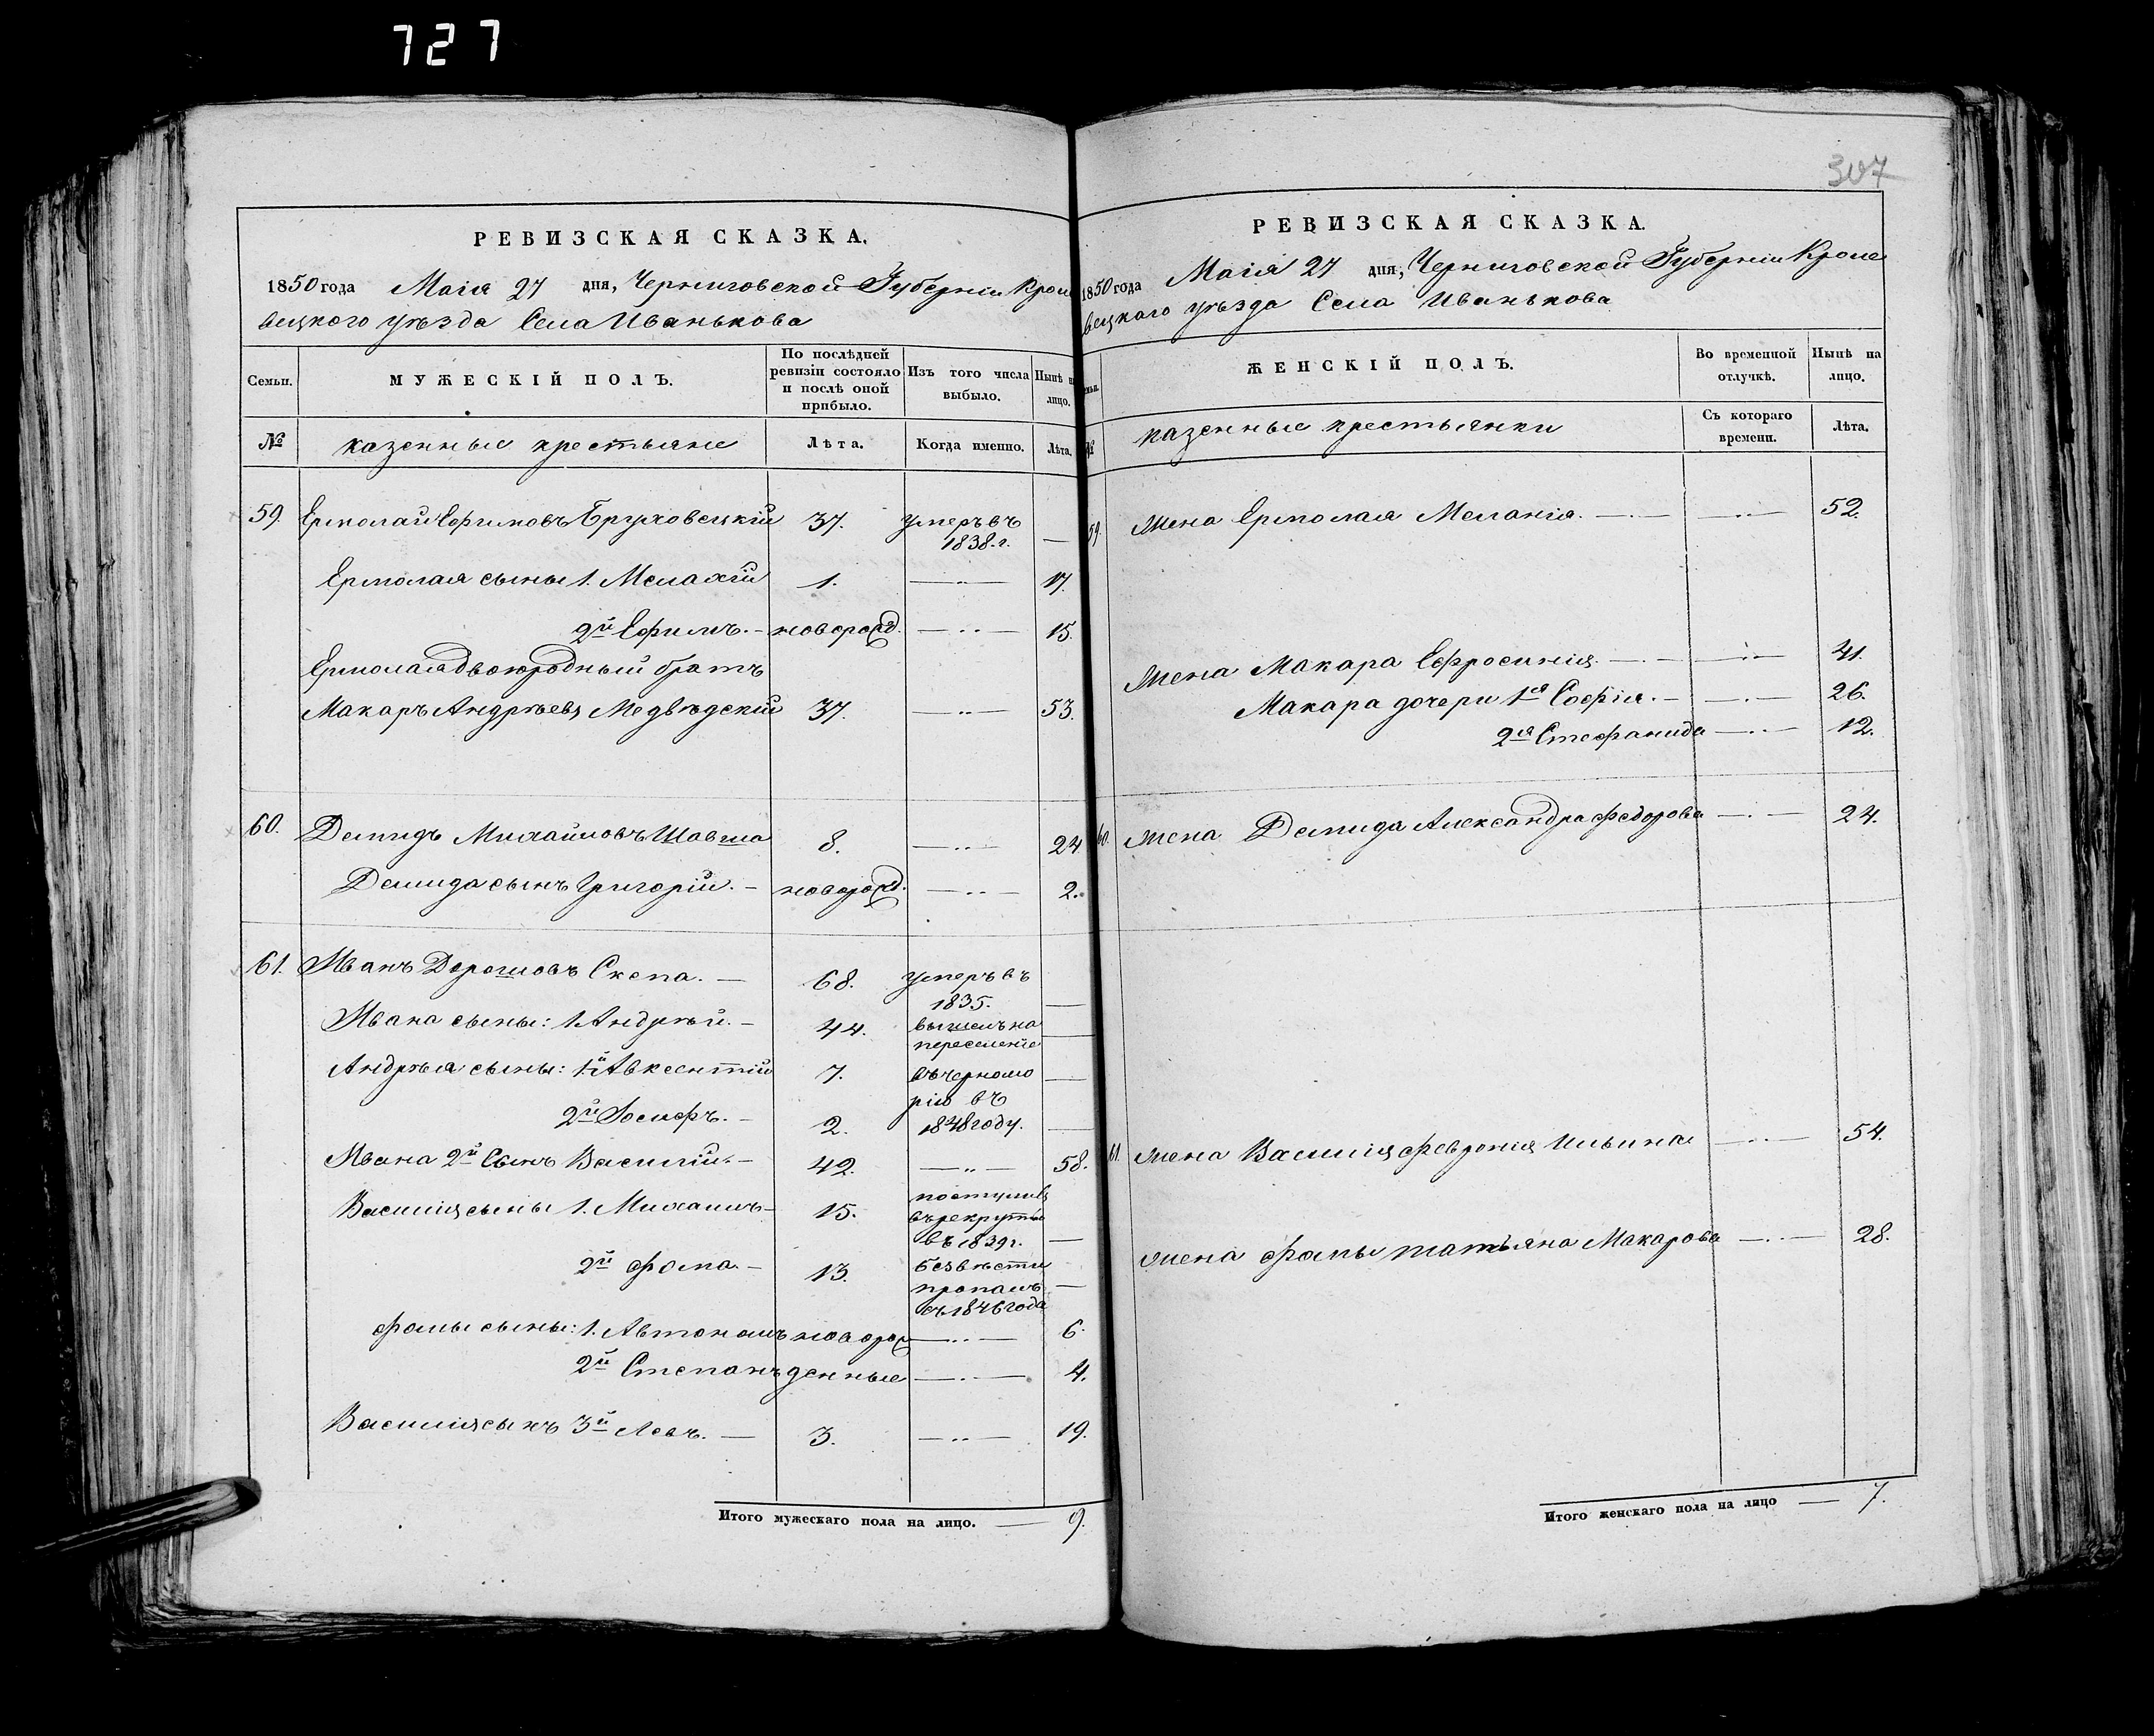 727
307
РЕВИЗСКАЯ СКАЗКА.
1850 года Маія 27 дня, Черниговской Губерніи Кроле
вецкого уѣзда Села Иванькова
Семьи. МУЖЕСКІЙ ПОЛЪ. По послѣдней ревизіи состояло и послѣ оной прибыло. Изъ того числа выбыло. Нынѣ на лицо.
№ казенные крестьяне Лѣта. Когда именно. Лѣта.
59. Ермолай Ефимовъ Бруховецкій 37. умеръ въ 1838. г. —
Ермолая сыны 1. Мелахій 1. —„— 17.
2й Ефимъ. — новорожд. —„— 15.
Ермолая двоюродный братъ
Макаръ Андрѣевъ Медвѣдскій 37. —„— 53.
60. Демидъ Михайловъ Шавша 8. —„— 24
Демида сынъ Григорій. — новорожд. —„— 2.
61. Иванъ Дорошовъ Скепа. — 68. умеръ въ 1835. —
Ивана сыны: 1. Андрѣй. — 44. вышелъ на —
переселеніе
Андрѣя сыны: 1й Авксентій 7. въ черномо —
рію въ
2й Іосифъ. — 2. 1848 году. —
Ивана 2й Сынъ Василій. — 42. —„— 58.
Василія сыны 1. Михаилъ — 15. поступилъ
въ рекруты
въ 1839 г. —
2й Фома. — 13. безвѣсти
пропалъ —
съ 1846 года
Фомы сыны: 1. Автономъ новорож —„— 6.
2й Степанъ денные —„— 4.
Василія сынъ 3й Левъ. — 3. —„— 19.
Итого мужескаго пола на лицо. — 9.
РЕВИЗСКАЯ СКАЗКА.
1850 года Маія 27 дня, Черниговской Губерніи Кроле
вецкаго уѣзда Села Иванькова
ЖЕНСКІЙ ПОЛЪ. Во временной отлучкѣ. Нынѣ на лицо.
№ казенные крестьянки Съ котораго времени. Лѣта.
59. Жена Ермолая Меланія. — —„— 52.
Жена Макара Ефросинія. — —„— 41.
Макара дочери 1ая Софія. — —„— 26.
2ая Стефанида —„— 12.
60. жена Демида Александра Федорова —„— 24.
61. жена Василія Февронія Ильина —„— 54.
жена Фомы татьяна Макарова —„— 28.
Итого женскаго пола на лицо — 7.